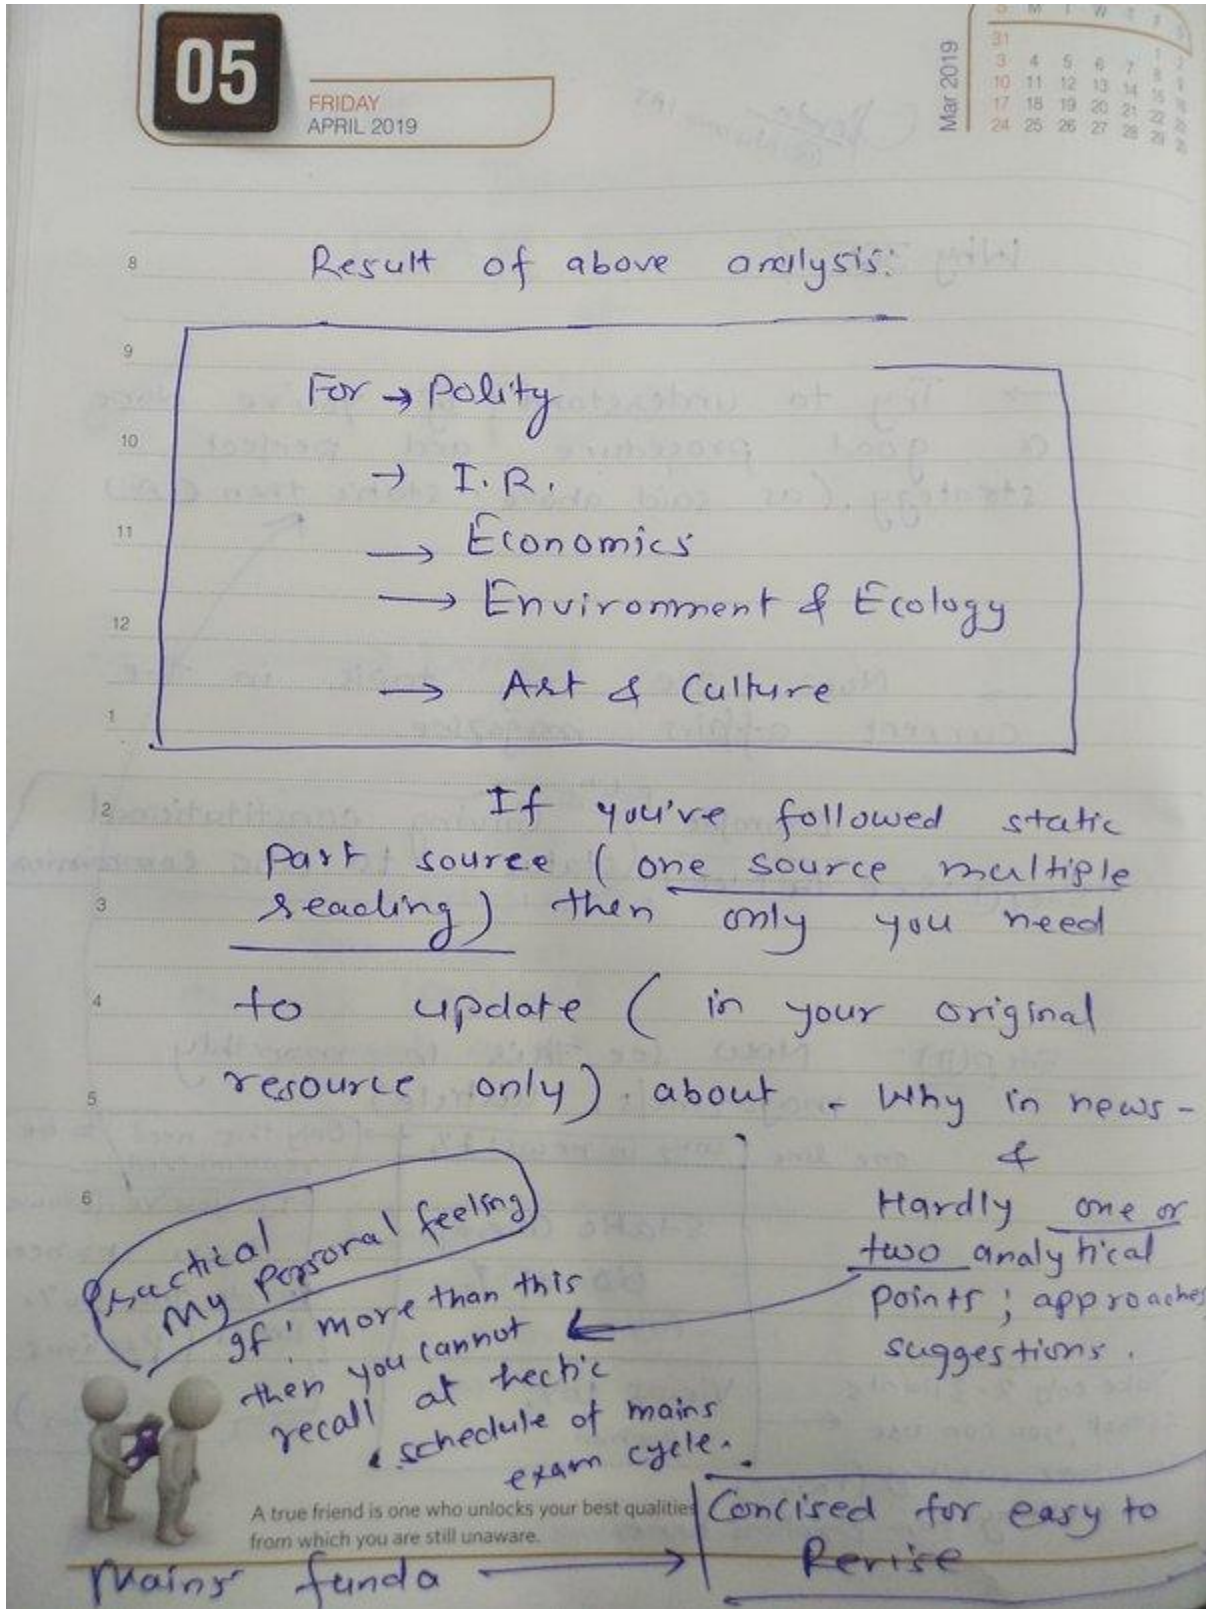 05
FRIDAY
APRIL 2019
Mar 2019
S M T W T F S
31
3 4 5 6 7 8 9
10 11 12 13 14 15 16
17 18 19 20 21 22 23
24 25 26 27 28 29 30
8
Result of above analysis:
9
For → Polity
10
→ I.R.
11
→ Economics
→ Environment & Ecology
12
→ Art & Culture
1
2
If you've followed static
part source (one source multiple
3
reading) then only you need
4
to update (in your original
5
resource only) about - Why in news -
&
6
Hardly one or
two analytical
points ; approaches
suggestions.
Practical
My personal feeling
If : more than this
then you cannot
recall at hectic
schedule of mains
exam cycle.
A true friend is one who unlocks your best qualities
from which you are still unaware.
Mains funda →
Concised for easy to
Revise